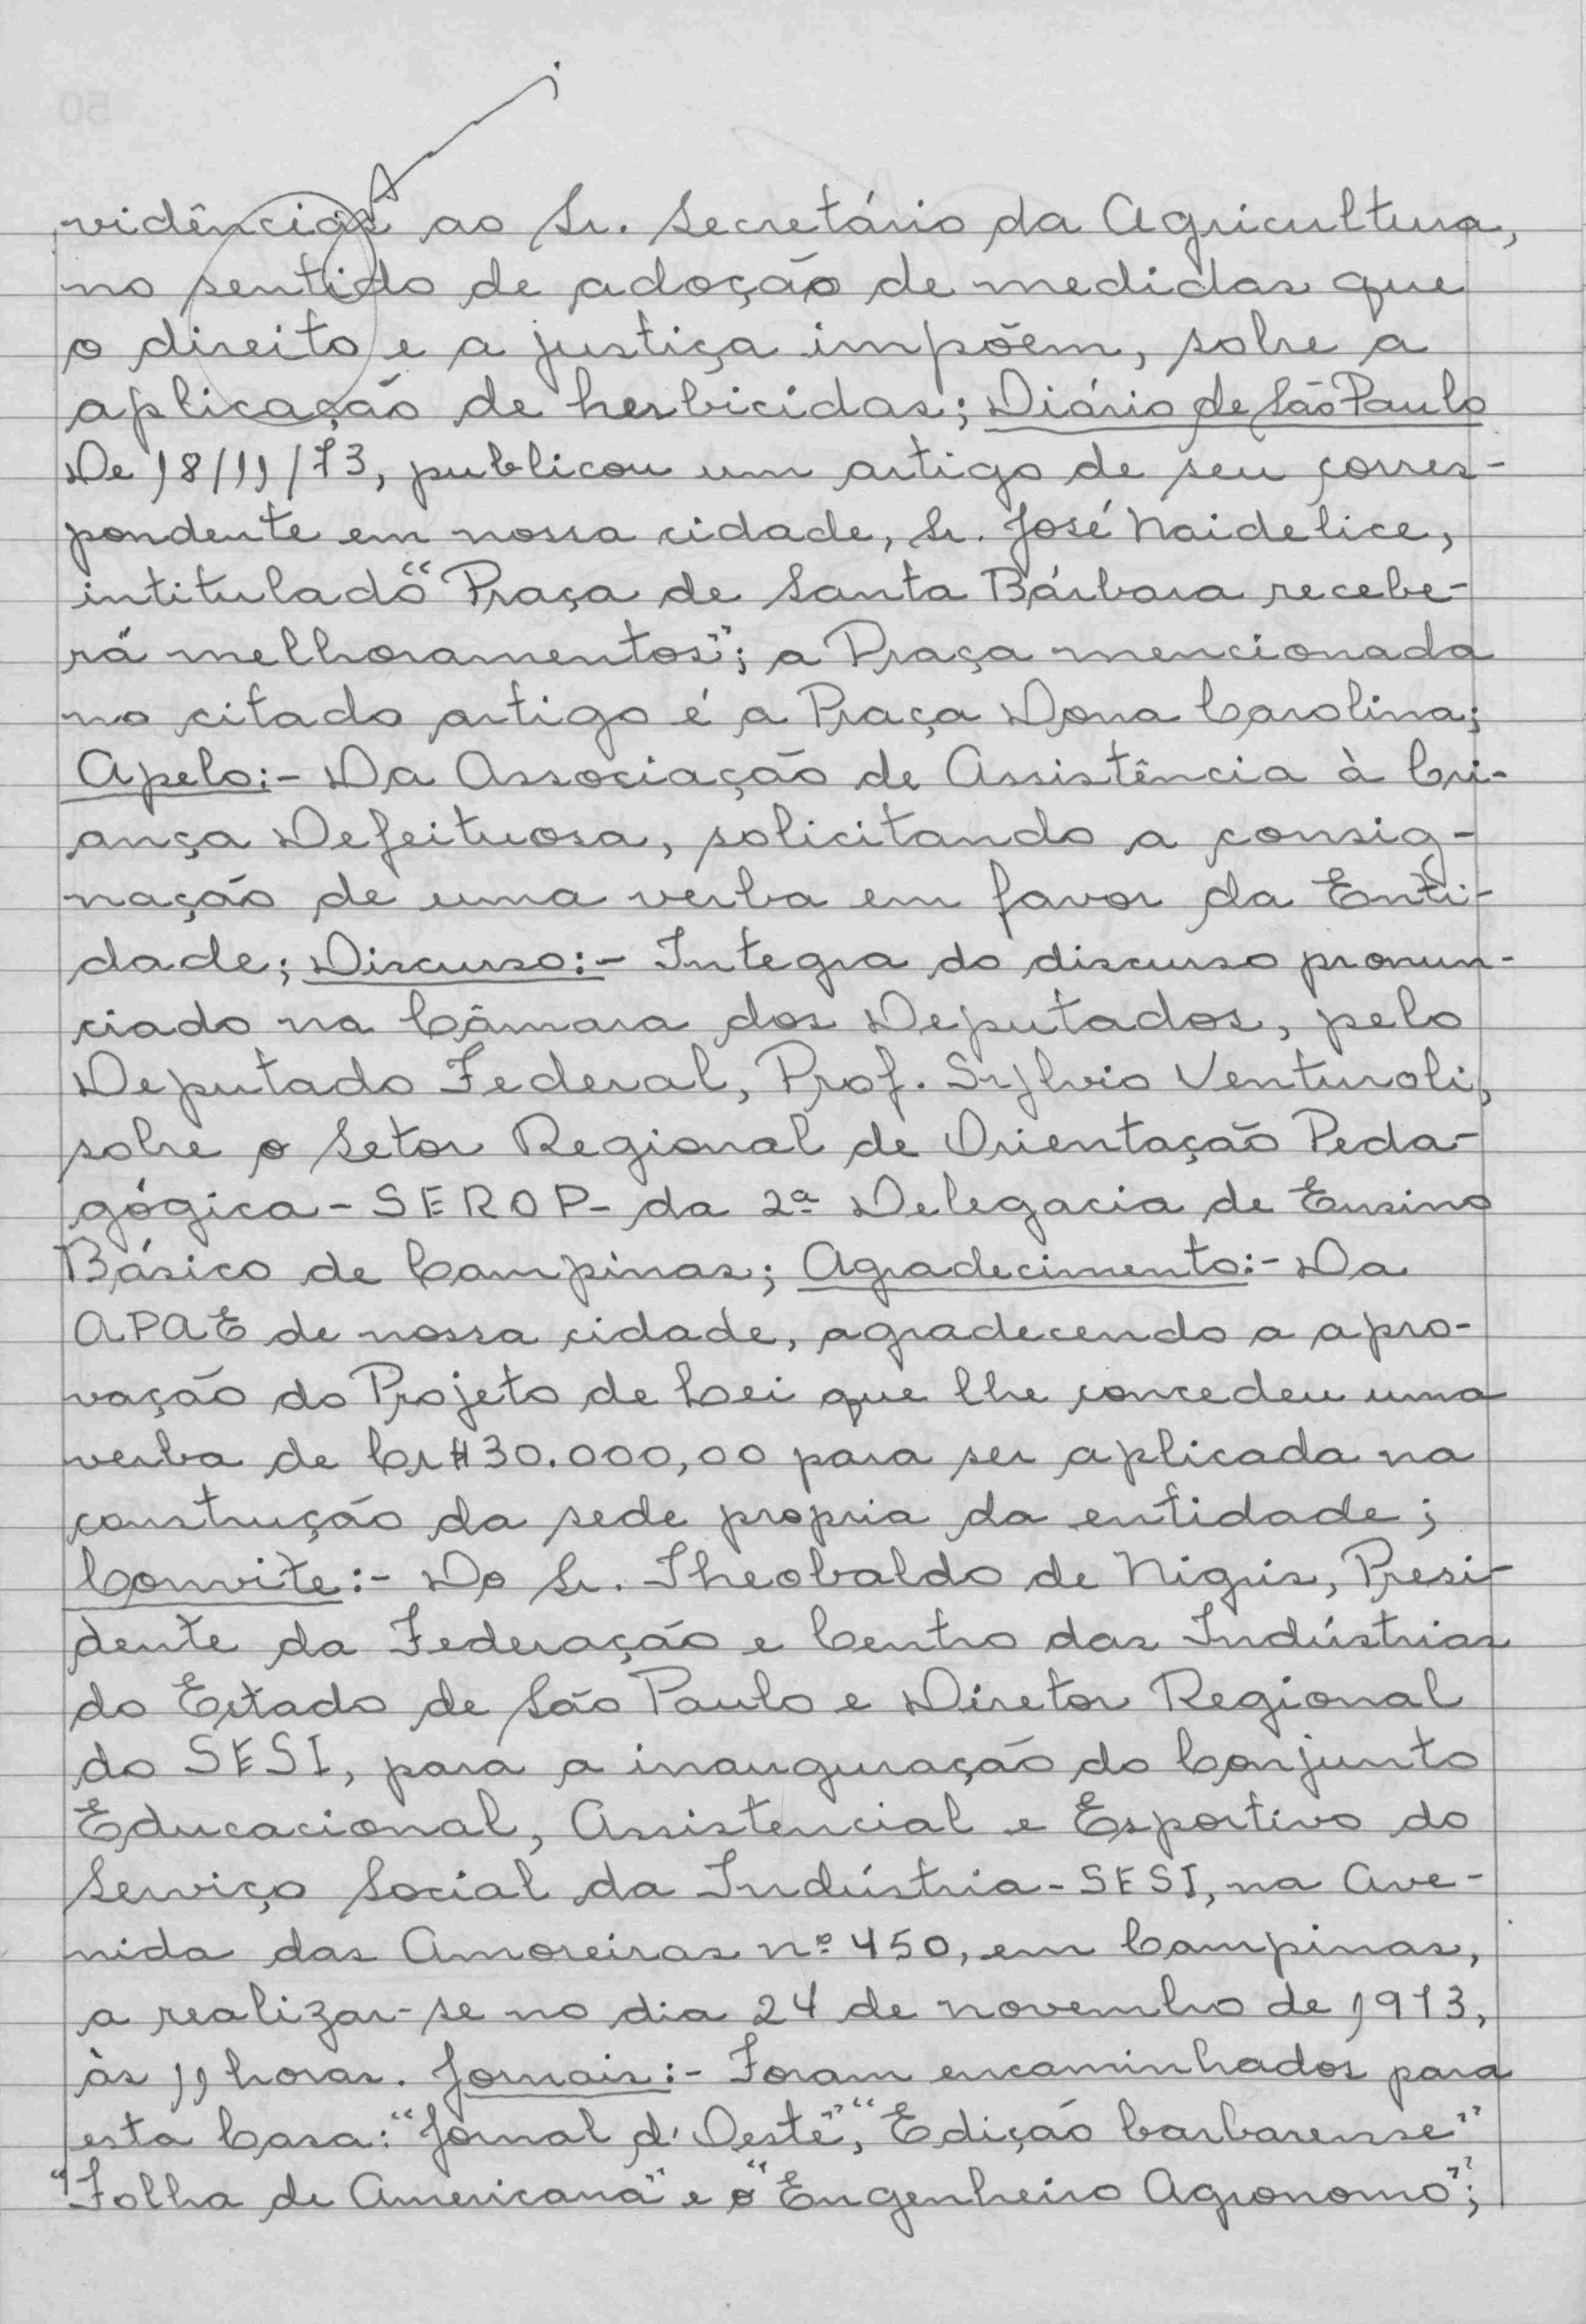 vidências ao Sr. Secretário da Agricultura,
no sentido de adoção de medidas que
o direito e a justiça impõem, sobre a
aplicação de herbicidas; Diário de São Paulo
De 18/11/73, publicou um artigo de seu corres-
pondente em nossa cidade, Sr. José Naidelice,
intitulado "Praça de Santa Bárbara recebe-
rá melhoramentos"; a Praça mencionada
no citado artigo é a Praça Dona Carolina;
Apelo:- Da Associação de Assistência à Cri-
ança Defeituosa, solicitando a consig-
nação de uma verba em favor da Enti-
dade; Discurso:- Integra do discurso pronun-
ciado na Câmara dos Deputados, pelo
Deputado Federal, Prof. Sylvio Venturoli,
sobre o Setor Regional de Orientação Peda-
gógica - SEROP - da 2ª Delegacia de Ensino
Básico de Campinas; Agradecimento:- Da
APAE de nossa cidade, agradecendo a apro-
vação do Projeto de Lei que lhe concedeu uma
verba de Cr$ 30.000,00 para ser aplicada na
construção da sede propria da entidade;
Convite:- Do Sr. Theobaldo de Nigris, Presi-
dente da Federação e Centro das Indústrias
do Estado de São Paulo e Diretor Regional
do SESI, para a inauguração do Conjunto
Educacional, Assistencial e Esportivo do
Serviço Social da Indústria - SESI, na Ave-
nida das Amoreiras nº 450, em Campinas,
a realizar-se no dia 24 de novembro de 1973,
às 11 horas. Jornais:- Foram encaminhados para
esta Casa: "Jornal d'Oeste", "Edição barbarense"
"Folha de Americana" e o "Engenheiro Agronomo";